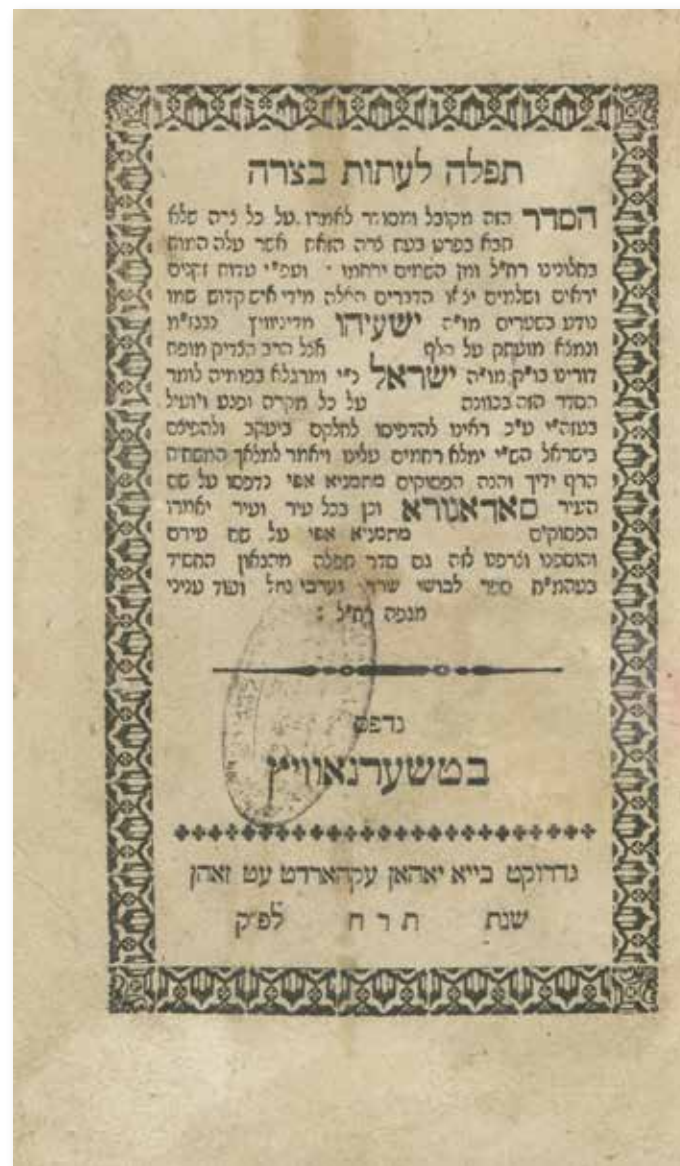 תפלה לעתות בצרה
הסדר הזה מקובל ומסודר לאמרו על כל צרה שלא
תבא בפרט בעת צרה הזאת אשר עלה המות
בחלונינו רח"ל ומן השמים ירחמו ועפ"י עדות זקנים
יראים ושלמים יצאו הדברים האלה מידי איש קדוש שמו
נודע בשערים מו"ה ישעיהו מדיניוויץ
ונמצא מועתק על קלף אצל הרב הצדיק מופת
דורינו בו"ק מו"ה ישראל נ"י ומרגלא בפומיה לומר
הסדר הזה בכוונה על כל מקרה ופגע ויועיל
בעזה"י ע"כ ראינו להדפיסו לחלקם ביעקב ולהפיצם
בישראל הש"י ימלא רחמים עלינו ויאמר למלאך המשחית
הרף ידיך והנה הפסוקים מתמניא אפי נדפסו על שם
העיר סאדאגורא וכן בכל עיר ועיר יאמרו
הפסוקים מתמניא אפי על שם עירם
והוספנו וצרפנו לזה גם סדר תפלה מהגאון החסיד
בעהמ"ח ספר לבושי שרד וערבי נחל ועוד עניני
מגפה רח"ל :
נדפס
בטשערנאוויץ
גדרוקט בייא יאהאן עקהארדט עט זאהן
שנת תרח לפ"ק